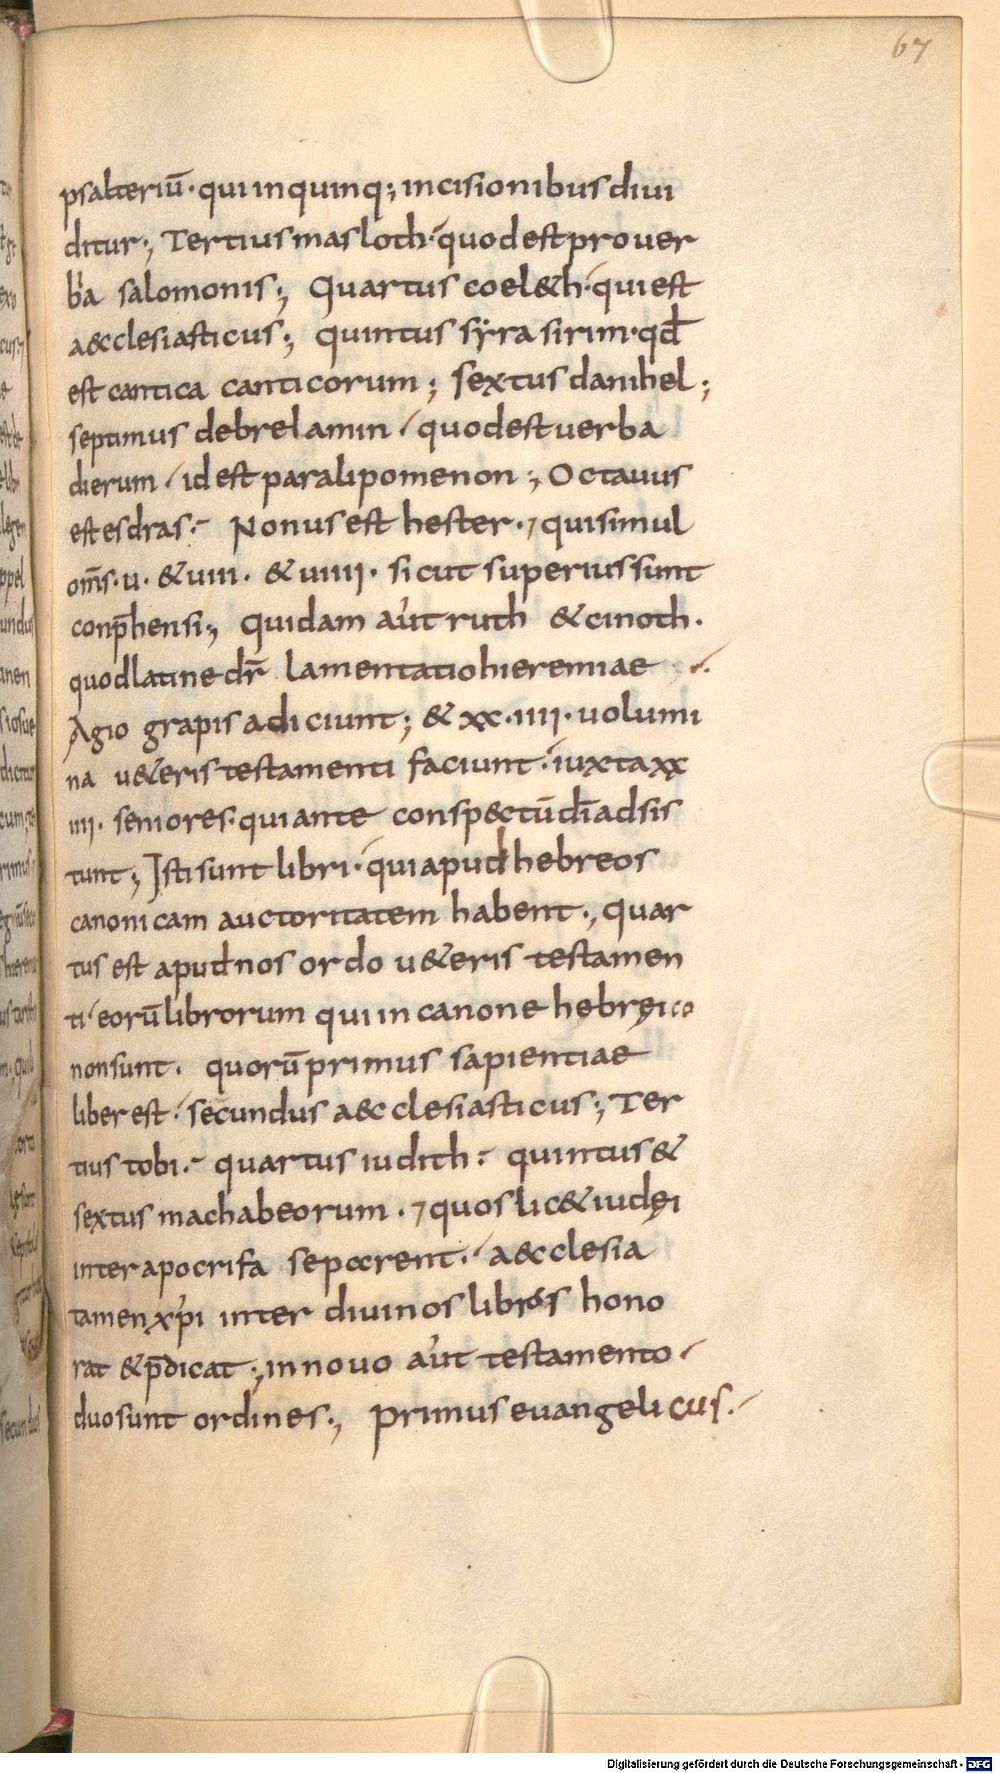 67
psalteriū · qui in quinq; incisionibus diui
ditur; Tertius masloth · quod est prouer
b̄a salomonis; Quartus coel&h · qui est
a&cclesiasticus; quintus syra sirim · qđ
est cantica canticorum; sextus danihel;
septimus debrelamin / quod est uerba
dierum / id est paralipomenon; Octauus
est esdras · Nonus est hester · ⁊ qui simul
om̄s · u · & uiii · & uiiii · sicut superius sunt
conp̄hensi; Quidam aut̓ ruth & cinoth ·
quod latine dr̄ lamentatio hieremiae ·
Agio grapis adiciunt; & xx · iiii · uolumi
na u&eris testamenti faciunt · iuxta xx
iiii · seniores · qui ante consp&ctū dī adsis
tunt; Isti sunt libri · qui apud hebreos
canonicam auctoritatem habent; quar
tus est apud nos ordo u&eris testamen
ti / eorū librorum qui in canone hebreico
non sunt · quorū primus sapientiae
liber est · secundus a&cclesiasticus; Ter
tius tobi · quartus iudith · quintus &
sextus machabeorum · ⁊ quos lic& iudęi
inter apocrifa seperent · a&cclesia
tamen xp̄i inter diuinos libros hono
rat & p̄dicat; in nouo aut̓ testamento ·
duo sunt ordines; primus euangelicus ·
secundus
Digitalisierung gefördert durch die Deutsche Forschungsgemeinschaft - DFG